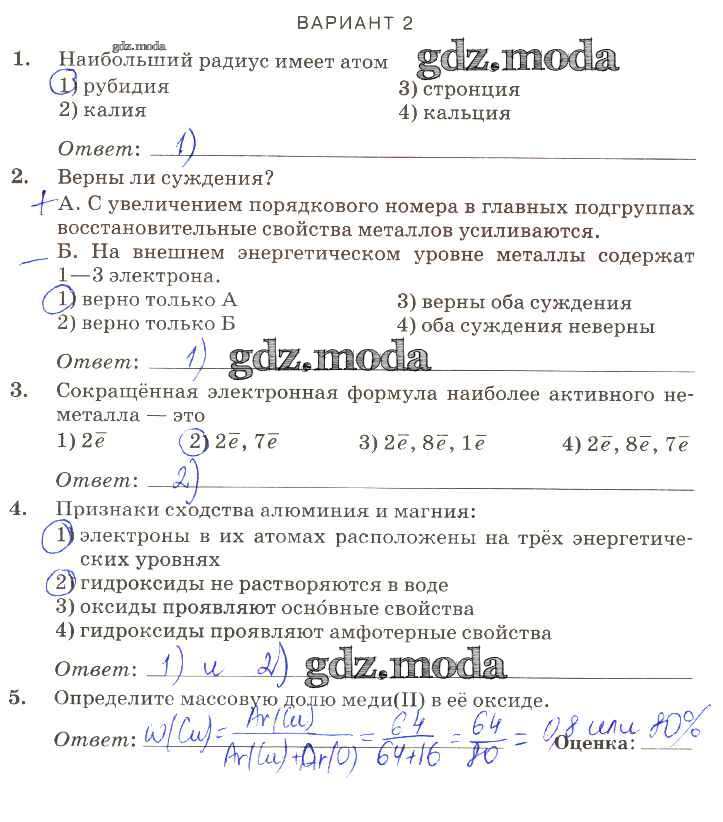 ВАРИАНТ 2
gdz.moda
1. Наибольший радиус имеет атом gdz.moda
1) рубидия 3) стронция
2) калия 4) кальция
Ответ: 1)
2. Верны ли суждения?
+ А. С увеличением порядкового номера в главных подгруппах
восстановительные свойства металлов усиливаются.
— Б. На внешнем энергетическом уровне металлы содержат
1—3 электрона.
1) верно только А 3) верны оба суждения
2) верно только Б 4) оба суждения неверны
Ответ: 1) gdz.moda
3. Сокращённая электронная формула наиболее активного не-
металла — это
1) 2e̅ 2) 2e̅, 7e̅ 3) 2e̅, 8e̅, 1e̅ 4) 2e̅, 8e̅, 7e̅
Ответ: 2)
4. Признаки сходства алюминия и магния:
1) электроны в их атомах расположены на трёх энергетиче-
ских уровнях
2) гидроксиды не растворяются в воде
3) оксиды проявляют оснóвные свойства
4) гидроксиды проявляют амфотерные свойства
Ответ: 1) и 2) gdz.moda
5. Определите массовую долю меди(II) в её оксиде.
Ответ: W(Cu) = Ar(Cu) / Ar(Cu)+Ar(O) = 64 / 64+16 = 64 / 80 = 0,8 или 80%
Оценка: